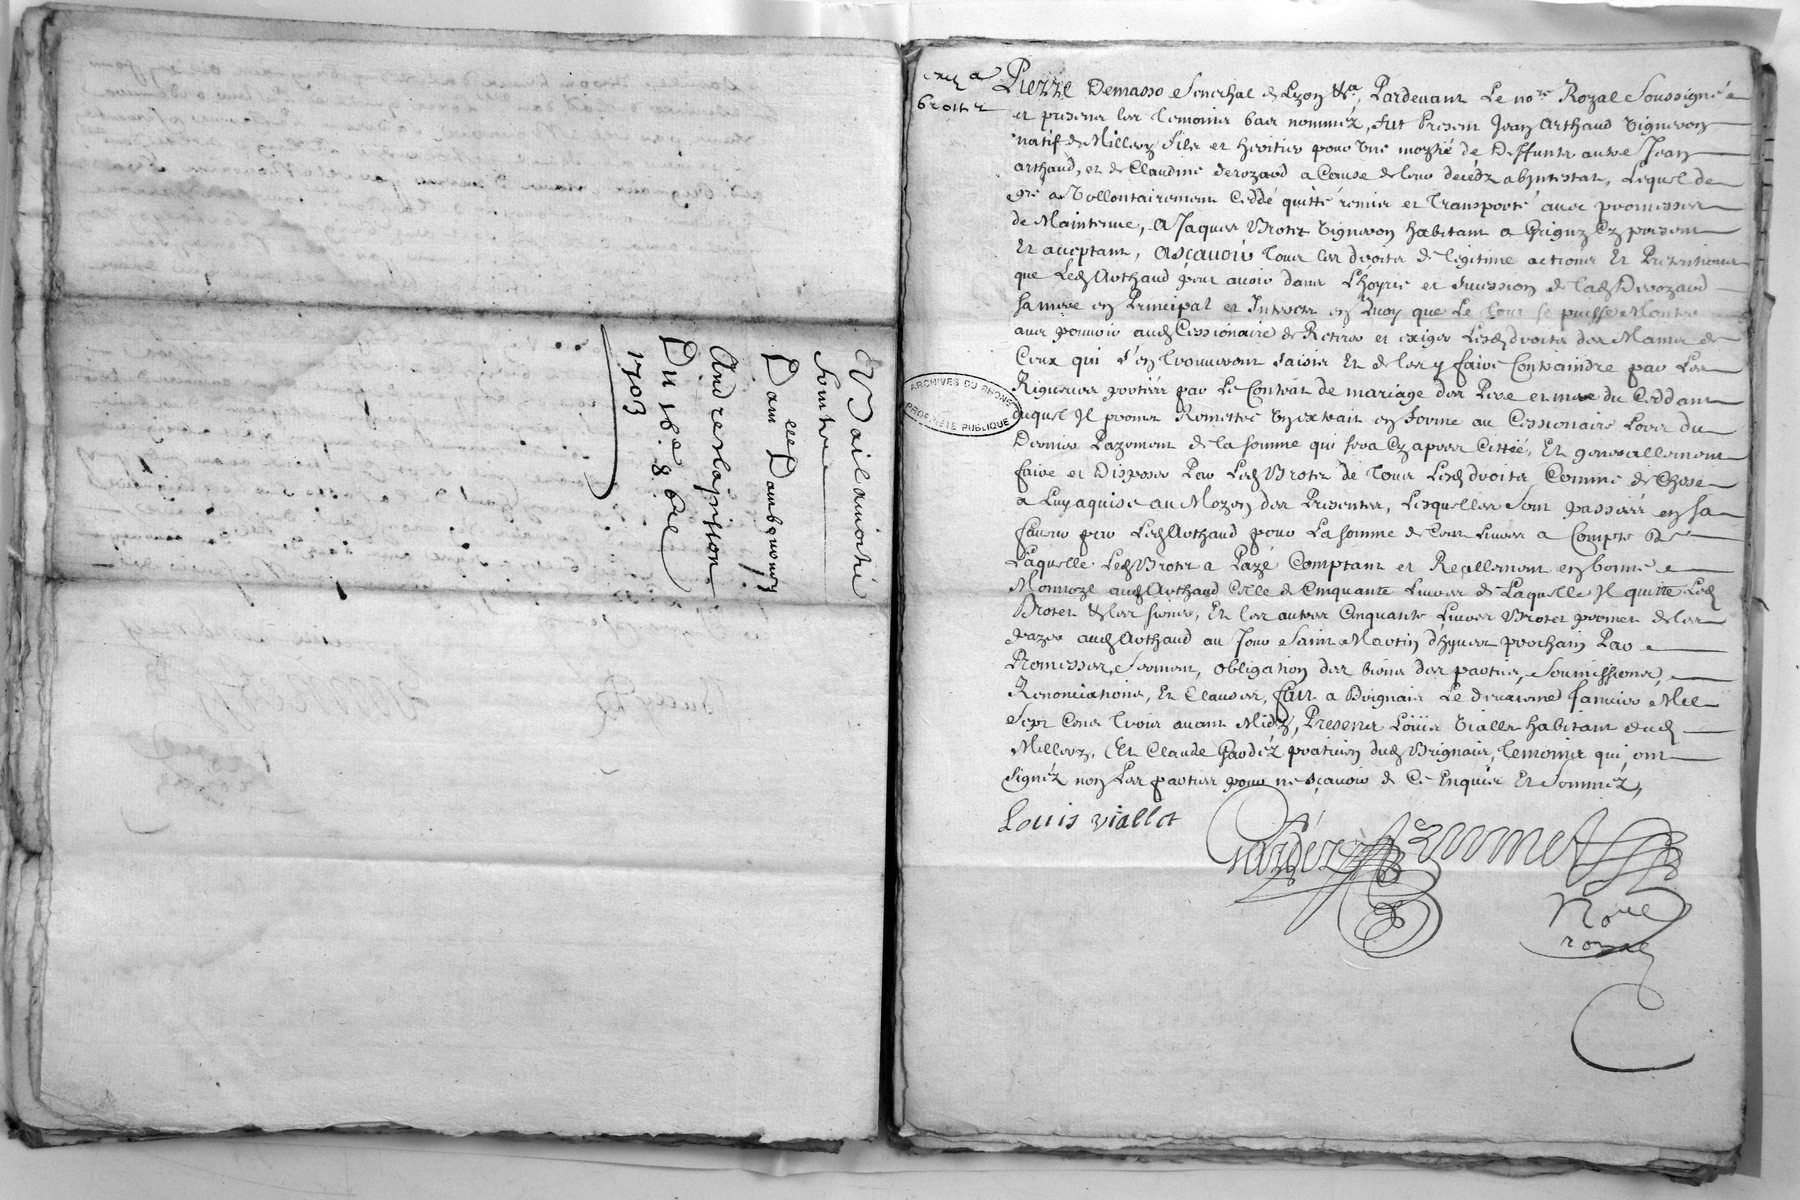 Bail amoitié
Fruitz
Dam.lle Dambournay
André Laprison
Du 16.e 8bre
1703
exp.é a
Brotet
Pierre Demasso Senechal de Lyon &.a Pardevant Le no.re Royal Soussigné
et presens les temoins bas nommez, fut Present Jean Arthaud Vigneron
natif de Millery fils et heritier pour une moytié de Deffunts autre Jean
arthaud, et de Claudine Derozard a Cause de leur decédz abjntestat, Lequel de
gré a Vollontairement Ceddé quitté remis et Transporté avec promesses
de Maintenue, A Jaques Brotet Vigneron habitant a Grigny Cy present
Et acceptant, Ascavoir Tous les droits de légitime actions Et Pretentions
que Led Arthaud peut avoir dans L'hoyrie et succession de lad Derozard
sa mere en Principal et Interetz en Quoy que Le tout se puisse Monter
avec pouvoir aud Cessionaire de Retirer et exiger Lesd droits des Mains de
Ceux qui s'en trouveront saisis Et de les y faire Contraindre par Les
Rigueurs portées par Le Contrat de mariage des Pere et mere du Ceddant
duquel Il promet Remettre Un extrait en forme au Cessionaire Lors du
Dernier Payement de la somme qui sera Cy apres Cottée, Et generallement
faire et Disposer Par Led Brotet de Tous Lesd droits Comme de Chose
a Luy aquise au Moyen des Presentes, Lesquelles sont passées en sa
faveur par Led Arthaud pour La somme de Cent Livres a Compte De
Laquelle Led Brotet a Payé Comptant et Reallement en bonne
Monnoye aud Arthaud Celle de Cinquante Livres de Laquelle Il quitte Led
Brotet & les siens, Et les autres Cinquante Livres Brotet promet de les
payer aud Arthaud au Jour Saint Martin d'hyver prochain Par
Promesses, Serment, obligation des biens des parties, Soumissions,
Renonciations, Et Clauses, fait a Brignais Le deuxieme Janvier Mil
Sept Cens Trois avant Midy, Presens Louis Viallet habitant aud
Millery, Et Claude Gardéz praticien dud Brignais, temoins qui ont
signéz non Les parties pour ne sçavoir de Ce Enquis Et Sommez,
Louis viallet
Gardéz
No.re
royal